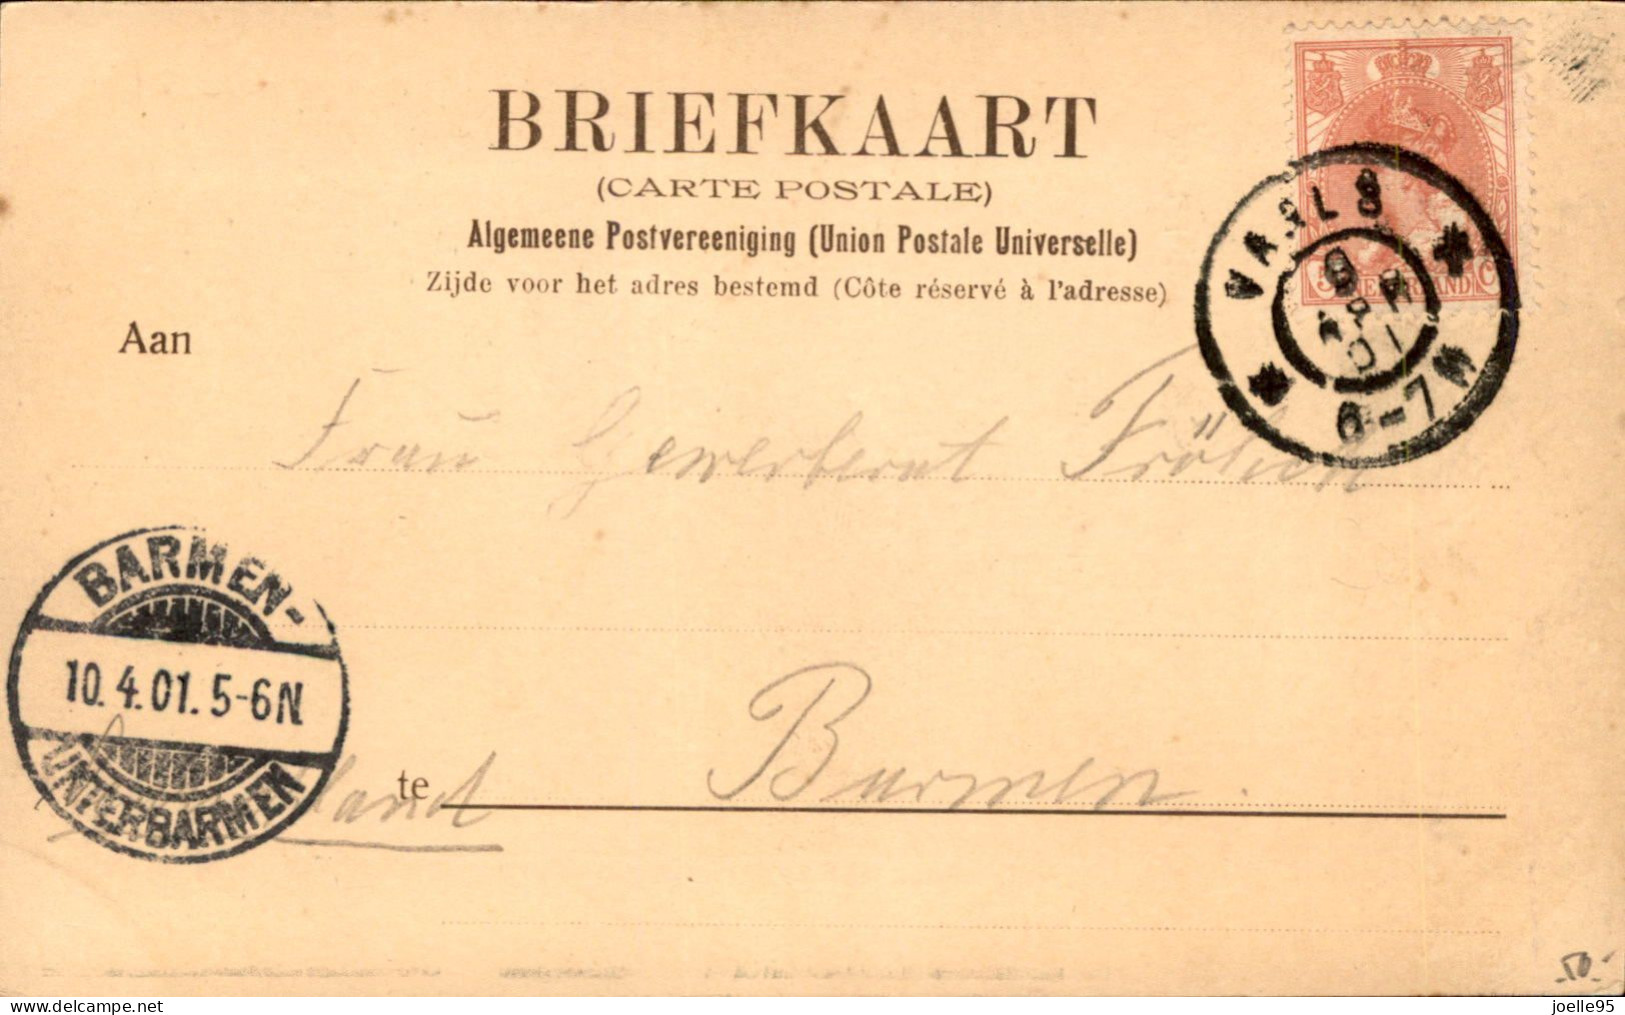 BRIEFKAART
(CARTE POSTALE)
Algemeene Postvereeniging (Union Postale Universelle)
Zijde voor het adres bestemd (Côte réservé à l'adresse)
NEDERLAND
VAALS
9 APR 01
6-7N
Aan
Frau Gewerberat Frölich
BARMEN-
10.4.01.5-6N
UNTERBARMEN
te Barmen.
50.-
joelle95